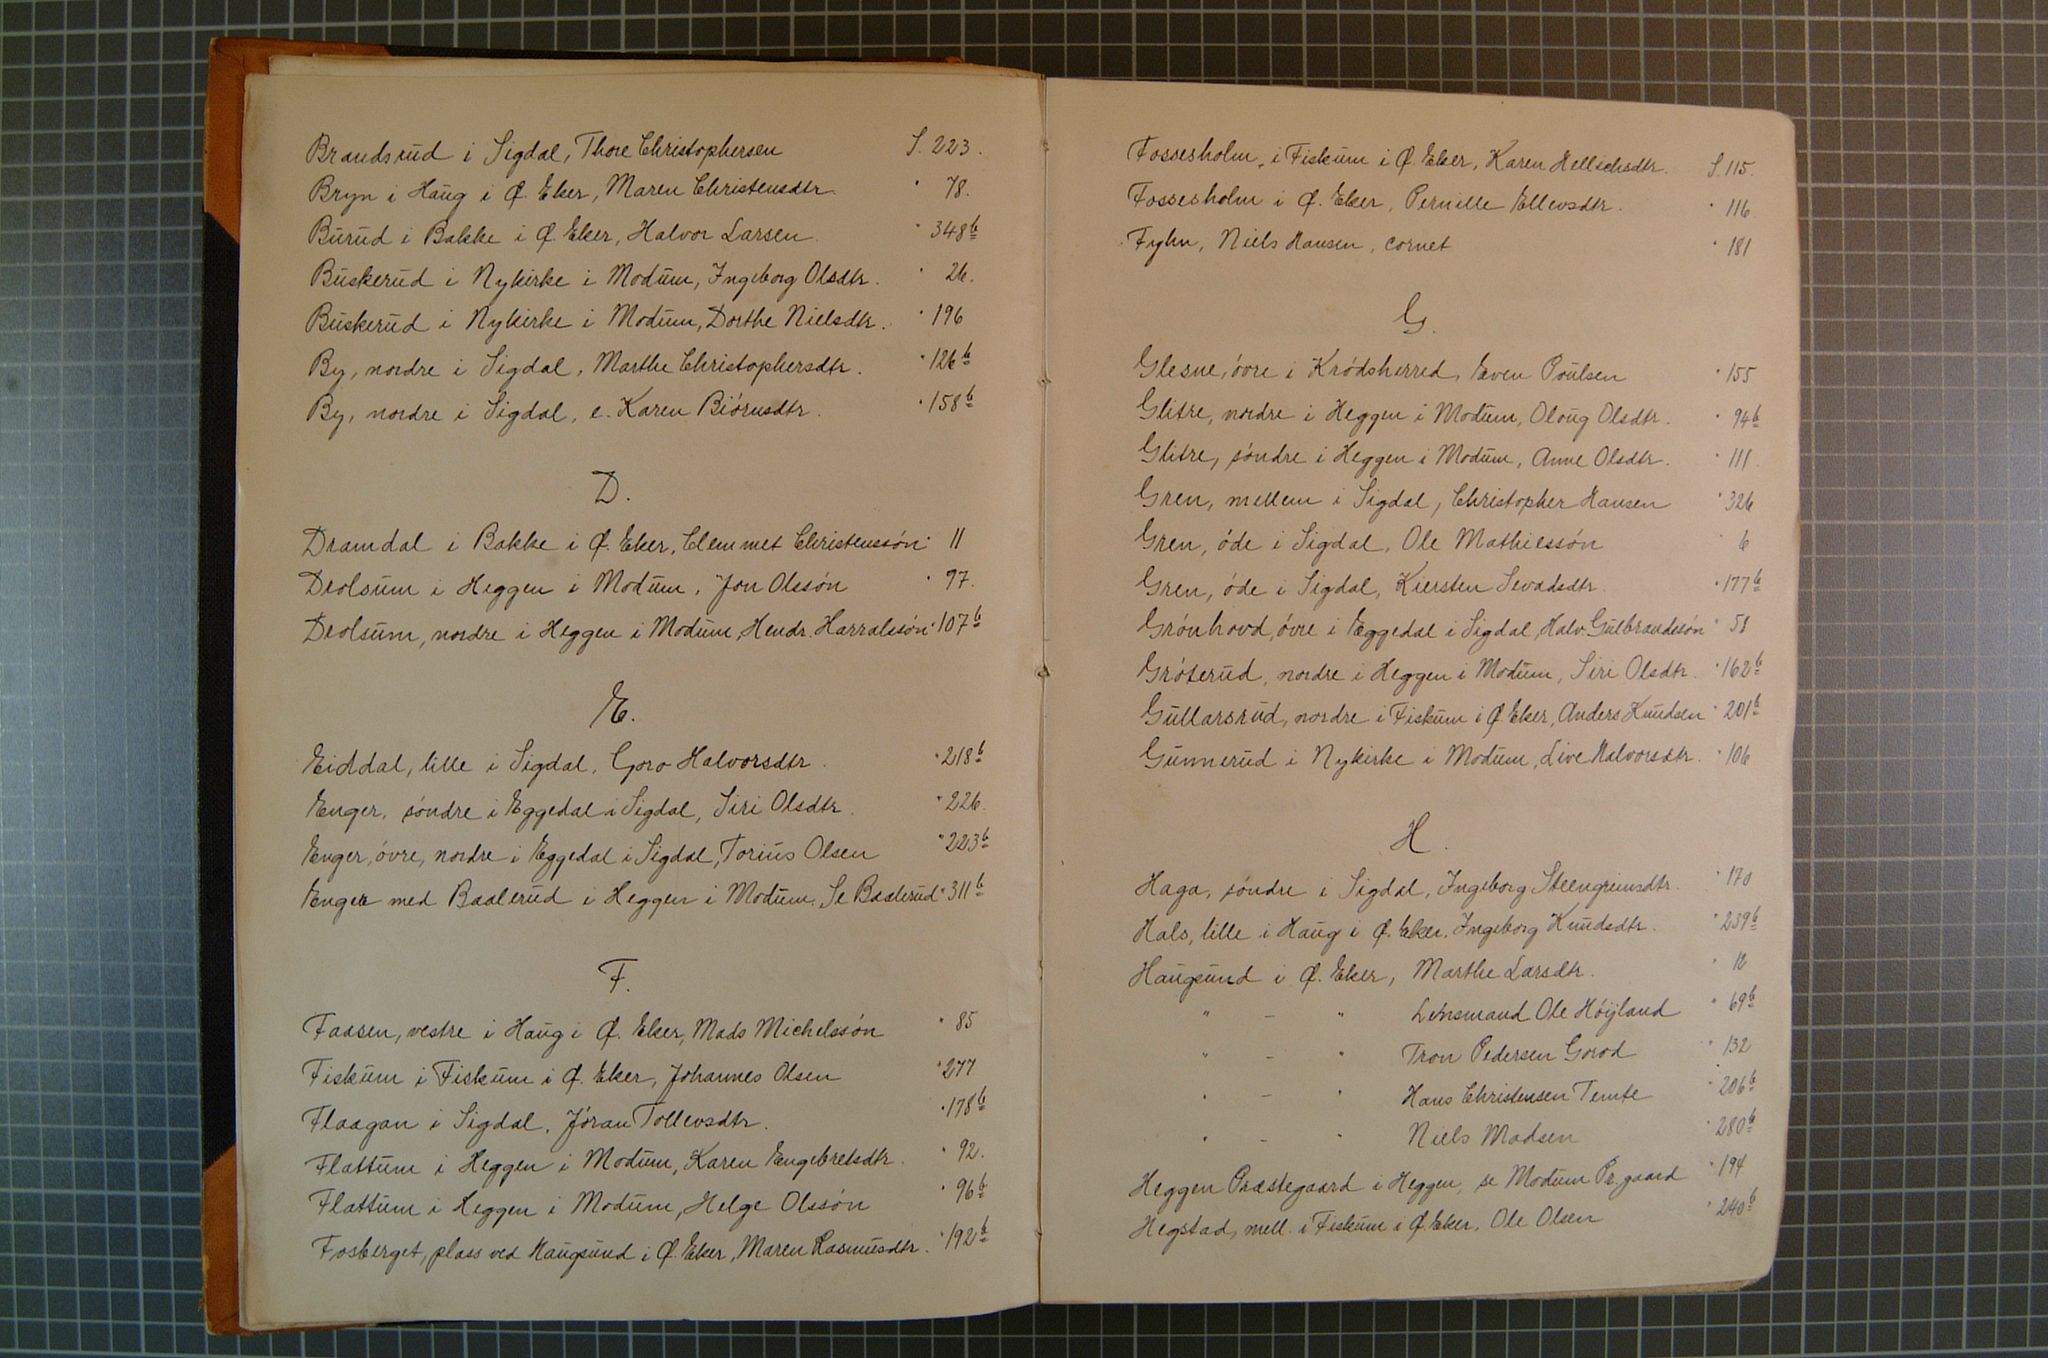 Brandsrud i Sigdal, Thore Christophersen S. 223.
Bryn i Haug i Ø. Eker, Maren Christensdtr. " 78.
Burud i Bakke i Ø. Eker, Halvor Larsen. " 348b
Buskerud i Nykirke i Modum, Ingeborg Olsdtr. " 26.
Buskerud i Nykirke i Modum, Dorthe Nielsdtr. " 196
By, nordre i Sigdal, Marthe Christophersdtr. " 126b
By, nordre i Sigdal, e. Karen Biörnsdtr. " 158b
D.
Dramdal i Bakke i Ø. Eker, Clemmet Christenssön " 11
Drolsum i Heggen i Modum, Jon Olssön " 97.
Drolsum, nordre i Heggen i Modum, Hendr. Harralssön " 107b
E.
Eiddal, lille i Sigdal, Goro Halvorsdtr. " 218b
Enger, söndre i Eggedal i Sigdal, Siri Olsdtr. " 226.
Enger, övre, nordre i Eggedal i Sigdal, Torius Olsen " 223b
Enger med Baalerud i Heggen i Modum, Se Baalerud " 311b
F.
Faasen, vestre i Haug i Ø. Eker, Mads Michelssön " 85
Fiskum i Fiskum i Ø. Eker, Johannes Olsen " 277
Flaagan i Sigdal, Jöran Tollevsdtr. " 178b
Flattum i Heggen i Modum, Karen Engebretsdtr. " 92.
Flattum i Heggen i Modum, Helge Olssön " 96b
Fosberget, plass ved Haugsund i Ø. Eker, Maren Rasmusdtr. " 192b
Fossesholm, i Fiskum i Ø. Eker, Karen Hellschsdtr. S. 115.
Fossesholm i Ø. Eker, Pernille Ellevsdtr. " 116.
Fyhn, Niels Hansen, cornet " 181
G.
Glesne, övre i Krödsherred, Even Poulsen " 155
Glitre, nordre i Heggen i Modum, Oloug Olsdtr. " 94b
Glitre, söndre i Heggen i Modum, Anne Olsdtr. " 111.
Gren, mellem i Sigdal, Christopher Hansen " 326
Gren, öde i Sigdal, Ole Mathiessön " 6
Gren, öde i Sigdal, Kiersten Sevadsdtr. " 177b
Grönhovd, övre i Eggedal i Sigdal, Halv. Gulbrandssön " 58
Gröterud, nordre i Heggen i Modum, Siri Olsdtr. " 162b
Gullarsrud, nordre i Fiskum i Ø. Eker, Anders Knudsen " 201b
Gunnerud i Nykirke i Modum, Live Halvorsdtr. " 106
H.
Haga, söndre i Sigdal, Ingeborg Steengrimsdtr. " 170
Hals, lille i Haug i Ø. Eker, Ingeborg Knudsdtr. " 239b
Haugsund i Ø. Eker, Marthe Larsdtr. " 12
" - " Lensmand Ole Höijland " 69b
" - " Tron Pedersen Gorod " 132
" - " Hans Christensen Temte " 206b
" - " Niels Madsen " 280b
Heggen Præstegaard i Heggen, se Modum Pr.gaard " 194
Hegstad, mell. i Fiskum i Ø. Eker, Ole Olsen " 240b